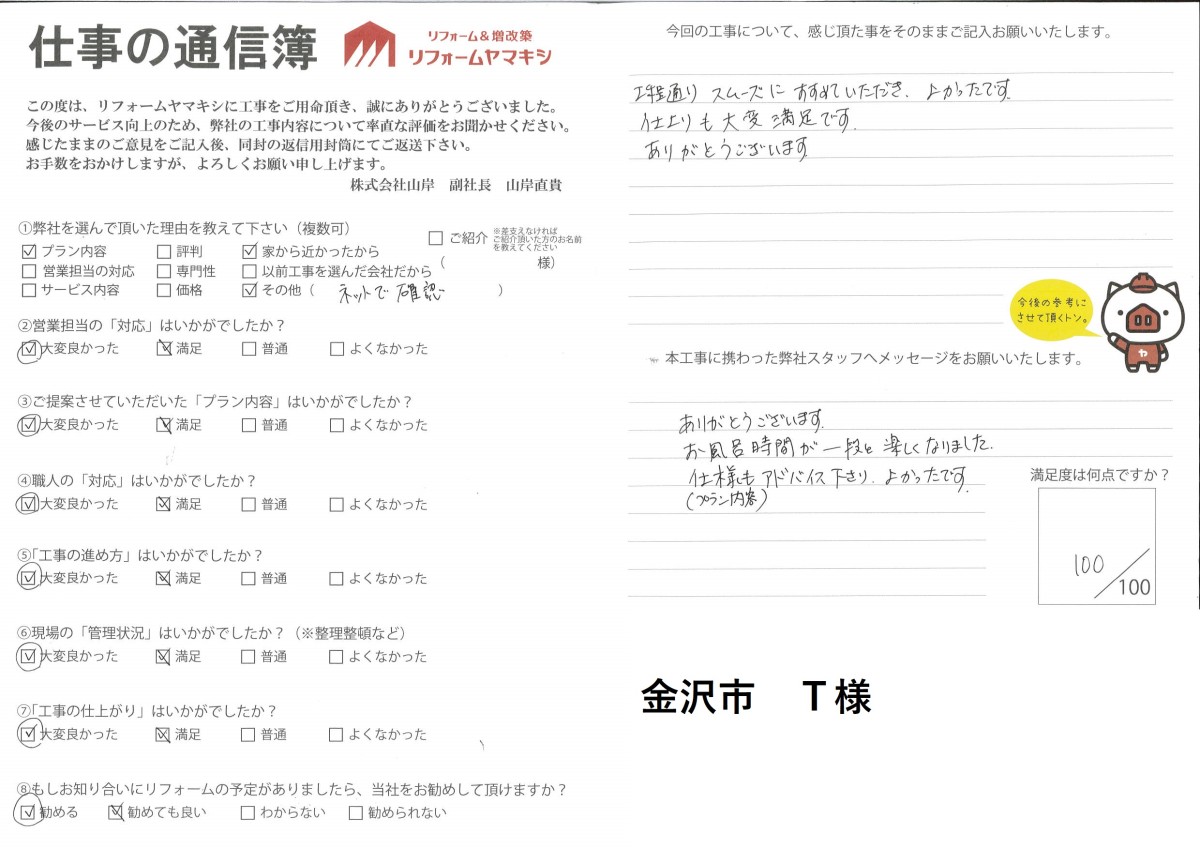 仕事の通信簿
リフォーム&増改築
リフォームヤマキシ
この度は、リフォームヤマキシに工事をご用命頂き、誠にありがとうございました。
今後のサービス向上のため、弊社の工事内容について率直な評価をお聞かせください。
感じたままのご意見をご記入後、同封の返信用封筒にてご返送下さい。
お手数をおかけしますが、よろしくお願い申し上げます。
株式会社山岸 副社長 山岸直貴
①弊社を選んで頂いた理由を教えて下さい（複数可）
☑ プラン内容 □ 評判 ☑ 家から近かったから
□ 営業担当の対応 □ 専門性 □ 以前工事を選んだ会社だから
□ サービス内容 □ 価格 ☑ その他（ ネットで確認 ）
□ ご紹介 ※差支えなければ
ご紹介頂いた方のお名前
を教えてください
（ 様）
②営業担当の「対応」はいかがでしたか？
☑ 大変良かった ☑ 満足 □ 普通 □ よくなかった
③ご提案させていただいた「プラン内容」はいかがでしたか？
☑ 大変良かった ☑ 満足 □ 普通 □ よくなかった
④職人の「対応」はいかがでしたか？
☑ 大変良かった ☑ 満足 □ 普通 □ よくなかった
⑤「工事の進め方」はいかがでしたか？
☑ 大変良かった ☑ 満足 □ 普通 □ よくなかった
⑥現場の「管理状況」はいかがでしたか？（※整理整頓など）
☑ 大変良かった ☑ 満足 □ 普通 □ よくなかった
⑦「工事の仕上がり」はいかがでしたか？
☑ 大変良かった ☑ 満足 □ 普通 □ よくなかった
⑧もしお知り合いにリフォームの予定がありましたら、当社をお勧めして頂けますか？
☑ 勧める ☑ 勧めても良い □ わからない □ 勧められない
今回の工事について、感じ頂た事をそのままご記入お願いいたします。
工程通り スムーズに すすめていただき、よかったです。
仕上りも 大変 満足です。
ありがとうございます
今後の参考に
させて頂くトン。
ヤ
本工事に携わった弊社スタッフへメッセージをお願いいたします。
ありがとうございます。
お風呂時間が 一段と 楽しくなりました。
仕様も アドバイス下さり、よかったです。
(プラン内容)
満足度は何点ですか？
100/100
金沢市 T様